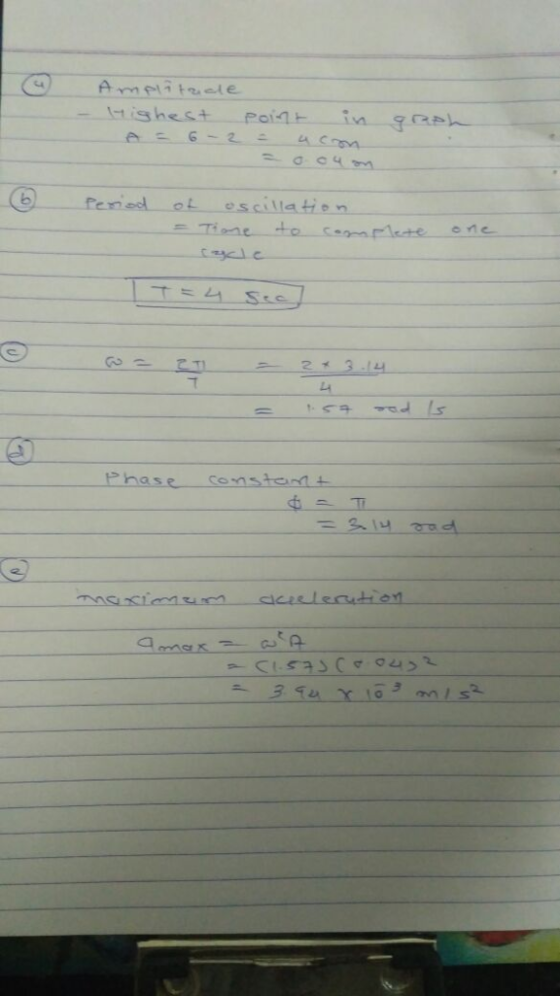 (a) Amplitude
- Highest point in graph
A = 6 - 2 = 4 cm
= 0.04 m
(b) Period of oscillation
= Time to complete one
cycle
T = 4 sec
(c) ω = 2π/T = 2 * 3.14/4
= 1.57 rad/s
(d)
Phase constant
φ = π
= 3.14 rad
(e)
maximum acceleration
amax = ω²A
= (1.57)(0.04)²
= 3.94 × 10⁻³ m/s²